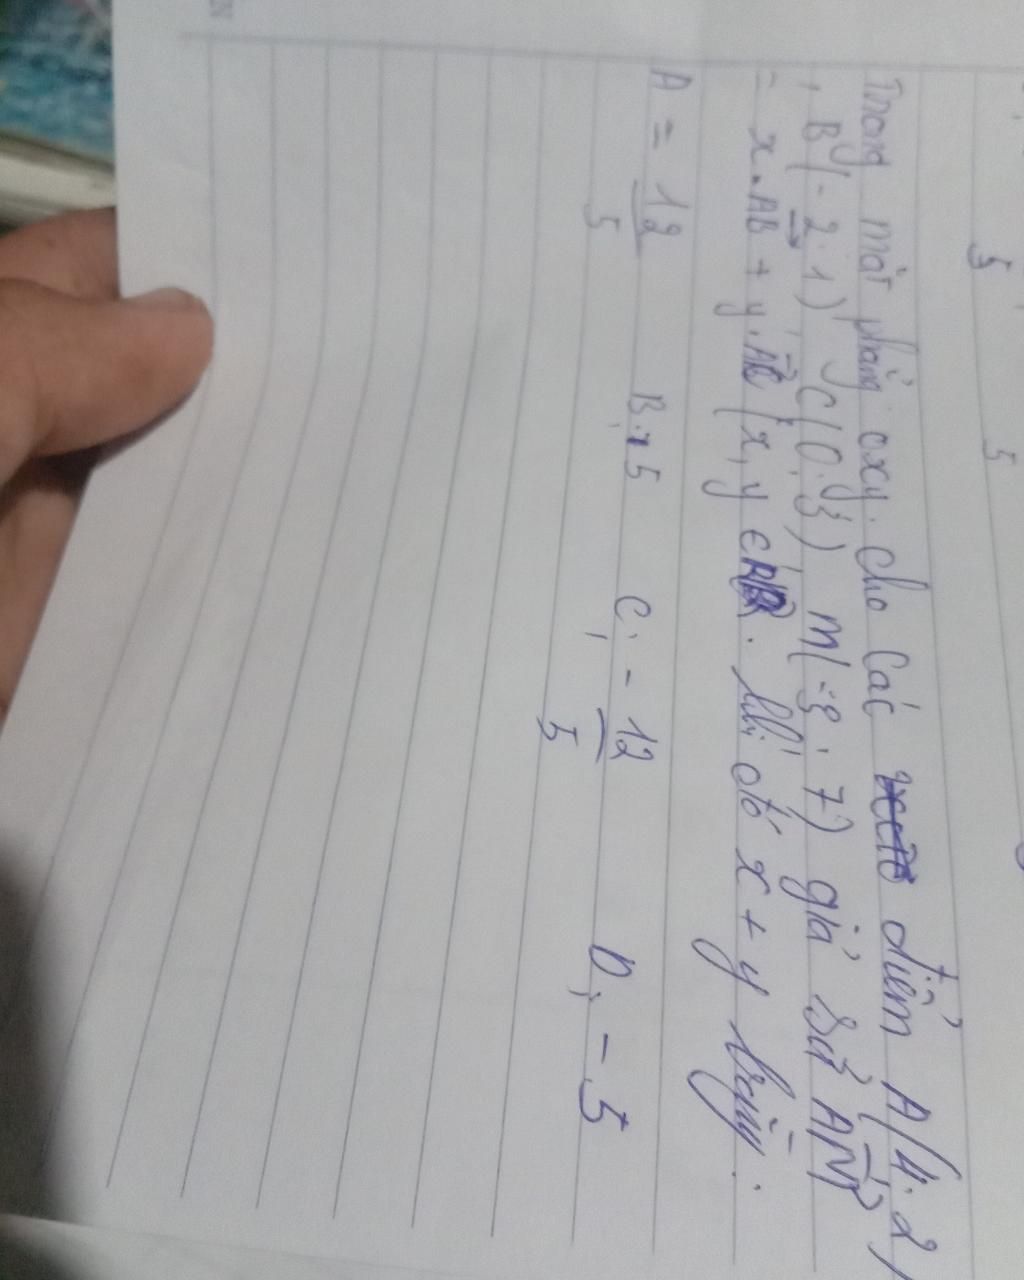 Trong mặt phẳng oxy. cho các điểm A(4.2)
, B(-2.1) C(0.3) M(-3.7) giả sử AM
= x.AB + y.AC (x, y ∈ R. khi đó x + y bằng.
A = 12/5 B, 5 C, -12/5 D, -5
5
5